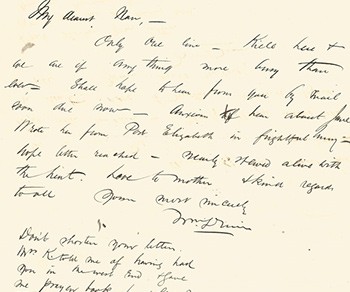 My dearest Nan, —
Only one line — Kell here &
we are if anything more busy than
ever — Shall hope to hear from you by mail
soon due now — Anxious to hear about June
Wrote her from Port Elizabeth in frightful hurry —
hope letter reached — nearly stewed alive with
the heat. Love to mother & kind regards
to all Yours most sincerely
Don't shorten your letters.
Mrs K told me of having had
you in new West End & gave
me prayer book